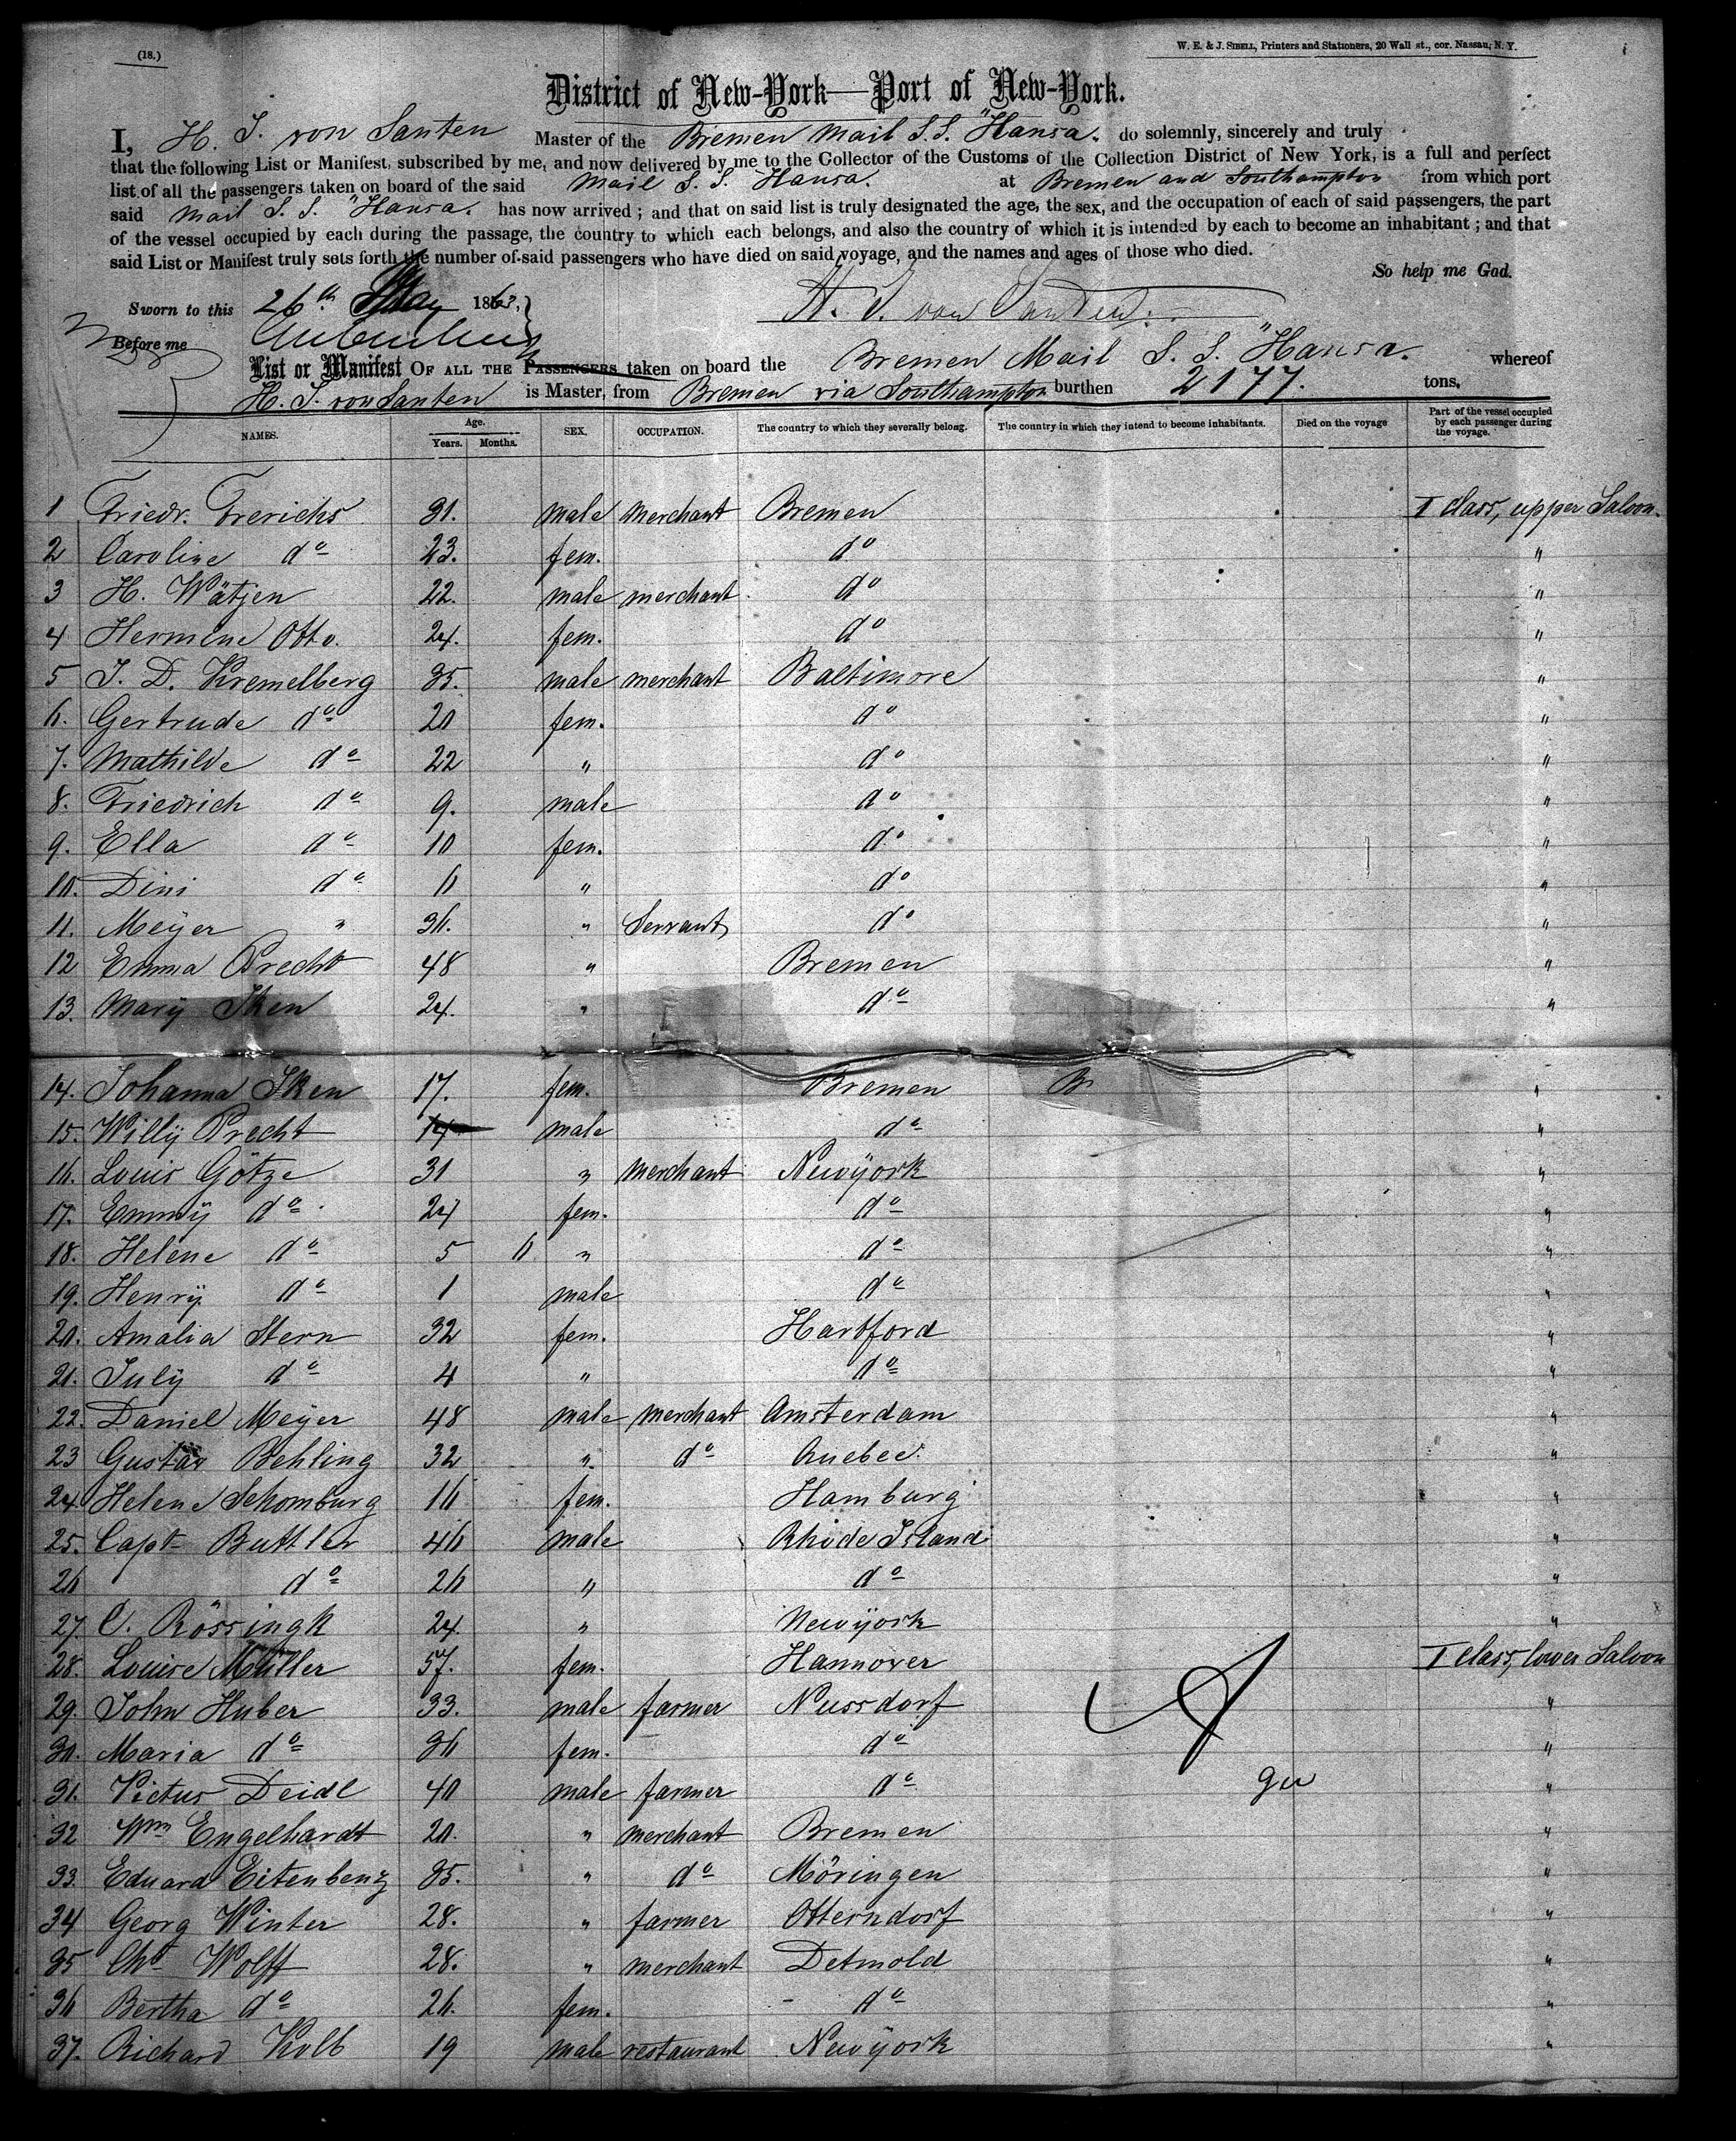 (18.)
W. E. & J. SIBELL, Printers and Stationers, 20 Wall st., cor. Nassau, N. Y.
District of New-York—Port of New-York.
I, H. J. von Santen Master of the Bremen Mail S. S. "Hansa. do solemnly, sincerely and truly
that the following List or Manifest, subscribed by me, and now delivered by me to the Collector of the Customs of the Collection District of New York, is a full and perfect
list of all the passengers taken on board of the said Mail S. S. Hansa. at Bremen and Southampton from which port
said Mail S. S. "Hansa. has now arrived; and that on said list is truly designated the age, the sex, and the occupation of each of said passengers, the part
of the vessel occupied by each during the passage, the country to which each belongs, and also the country of which it is intended by each to become an inhabitant; and that
said List or Manifest truly sets forth the number of said passengers who have died on said voyage, and the names and ages of those who died.
So help me God.
Sworn to this 26th May 1863, H. J. von Santen
Before me
List or Manifest OF ALL THE PASSENGERS taken on board the Bremen Mail S. S. "Hansa. whereof
H. J. von Santen is Master, from Bremen via Southampton burthen 2177. tons.
NAMES. Age. Years. Months. SEX. OCCUPATION. The country to which they severally belong. The country in which they intend to become inhabitants. Died on the voyage Part of the vessel occupied by each passenger during the voyage.
1 Friedr. Frerichs 31. male merchant Bremen I Class, upper Saloon.
2 Caroline do 23. fem. do "
3 H. Wätjen 22. male merchant do "
4 Hermine Otto. 24. fem. do "
5 J. D. Kremelberg 35. male merchant Baltimore "
6. Gertrude do 20 fem. do "
7. Mathilde do 22 " do "
8. Friedrich do 9. male do "
9. Ella do 10 fem. do "
10. Dini do 6 " do "
11. Meÿer " 36. " Servant do "
12 Emma Precht 48 " Bremen "
13. Marÿ Iken 24. " do "
14. Johanna Iken 17. fem. Bremen B "
15. Willÿ Precht 14 male do "
16. Louis Götze 31 " merchant Newÿork "
17. Emmÿ do 24 fem. do "
18. Helene do 5 6 " do "
19. Henrÿ do 1 male do "
20. Amalia Stern 32 fem. Hartford "
21. Julÿ do 4 " do "
22. Daniel Meÿer 48 male merchant Amsterdam "
23 Gustav Behling 32 " do Quebec. "
24 Helene Schomburg 16 fem. Hamburg "
25. Capt Buttler 46 male Rhode Island "
26 do 26 " do "
27. C. Rössingk 24. " Newÿork "
28. Louise Müller 57. fem. Hannover I class, lower Saloon
29. John Huber 33. male farmer Nussdorf "
30. Maria do 36 fem. do "
31. Victus Deidl 40 male farmer do "
32 Wm Engelhardt 20. " merchant Bremen "
33. Eduard Eitenbenz 35. " do Möringen "
34 Georg Winter 28. " farmer Otterndorf "
35 Chr Wolff 28. " merchant Detmold "
36 Bertha do 26. fem. do "
37. Richard Kolb 19 male restaurant Newÿork "